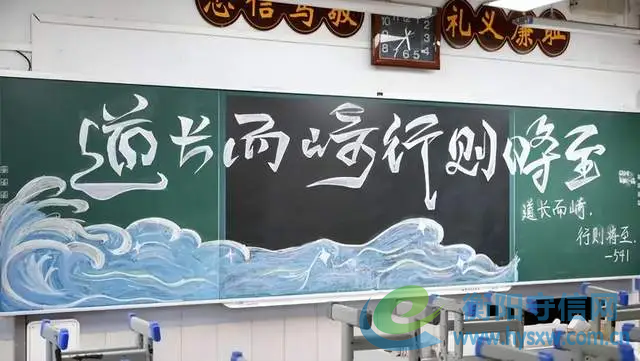 忠信笃敬
礼义廉耻
道长而崎行则将至
道长而崎,
行则将至.
—541
衡阳守信网
www.hysxw.com.cn